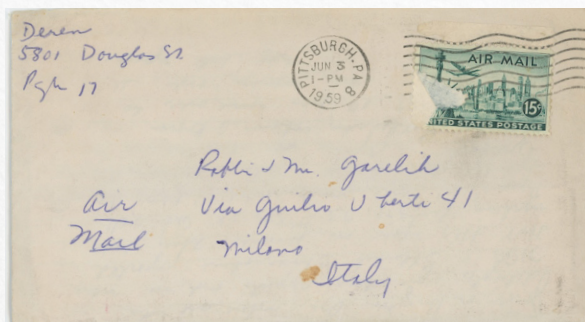 Deren
5801 Douglas St.
Pgh 17
PITTSBURGH, PA
JUN 3
1-PM
1959
8
AIR MAIL
15¢
UNITED STATES POSTAGE
Rabbi & Mr. Garelik
Air
Mail
Via Guilio Uberti 41
Milano
Italy